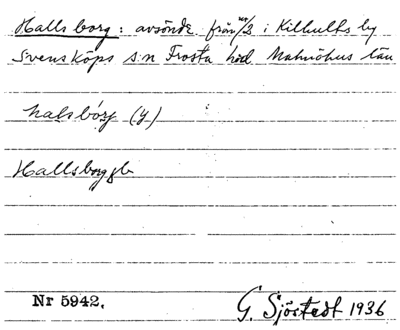 Hallsborg: avsönd. från nr/2 i Kilhults by
Svensköps sn Frosta hd Malmöhus län
halsbórj (y)
Hallsborg jb
Nr 5942.
G. Sjöstedt 1936